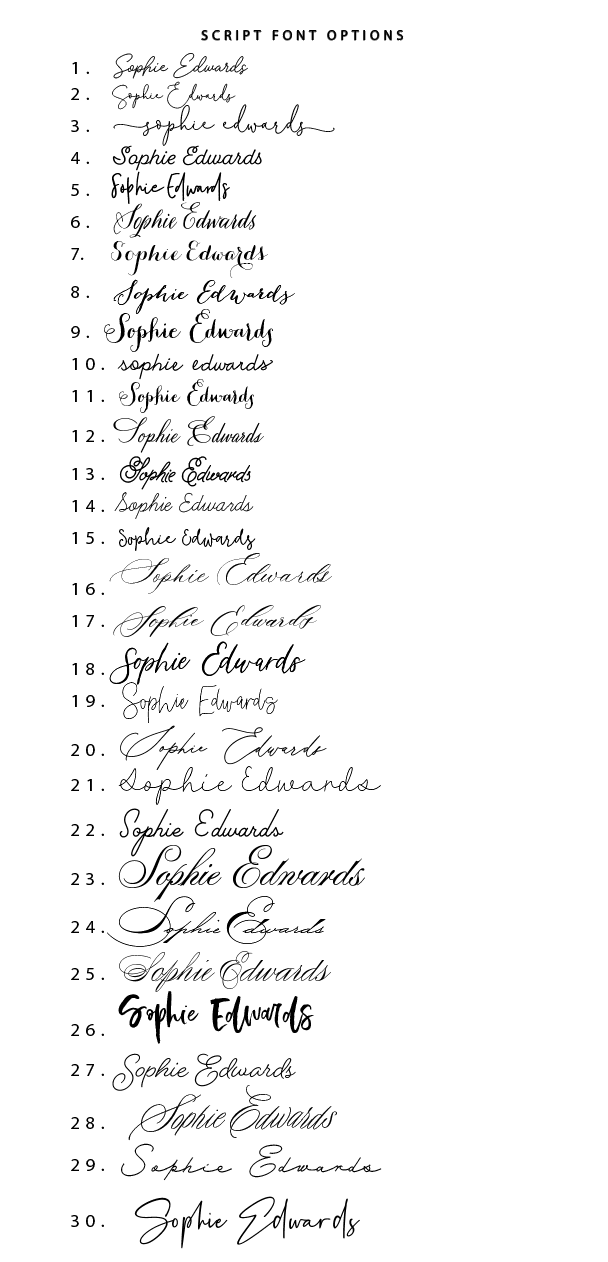 SCRIPT FONT OPTIONS
1. Sophie Edwards
2. Sophie Edwards
3. sophie edwards
4. Sophie Edwards
5. Sophie Edwards
6. Sophie Edwards
7. Sophie Edwards
8. Sophie Edwards
9. Sophie Edwards
10. sophie edwards
11. Sophie Edwards
12. Sophie Edwards
13. Sophie Edwards
14. Sophie Edwards
15. Sophie Edwards
16. Sophie Edwards
17. Sophie Edwards
18. Sophie Edwards
19. Sophie Edwards
20. Sophie Edwards
21. Sophie Edwards
22. Sophie Edwards
23. Sophie Edwards
24. Sophie Edwards
25. Sophie Edwards
26. Sophie Edwards
27. Sophie Edwards
28. Sophie Edwards
29. Sophie Edwards
30. Sophie Edwards